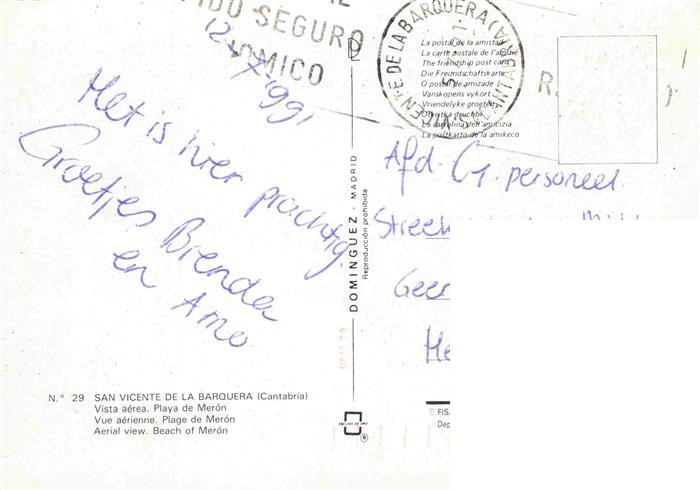 IDO SEGURO
OMICO
ENTE DE LA BARQUERA (
12-7-1991
Het is hier prachtig
Groetjes Brenda
en Arno
La postal de la amistad
La carte postale de l'amitié
The friendship post card
Die Freundschaftskarte
O postal de amizade
Vanskopens vykort
Vriendelyke groeten
La cartolina dell'amicizia
La postkarto de la amikeco
DOMINGUEZ - MADRID
Reproducción prohibida
Afd. G. personeel
Streek
Geer
He
N.° 29 SAN VICENTE DE LA BARQUERA (Cantabria)
Vista aérea. Playa de Merón
Vue aérienne. Plage de Merón
Aerial view. Beach of Merón
© FIS
Dep